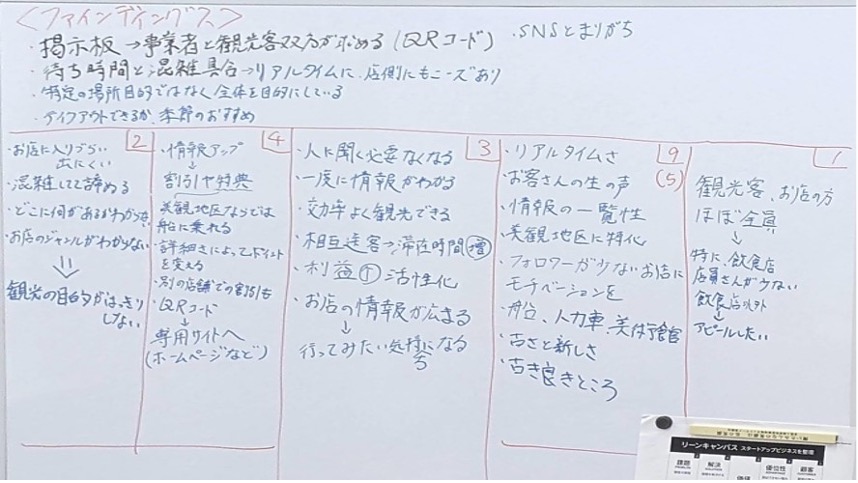 〈ファインディングス〉
・掲示板→事業者と観光客双方が求める(QRコード)
・SNSとまりがち
・待ち時間と混雑具合→リアルタイムに、店側にもニーズあり
・特定の場所目的ではなく全体を目的にしている
・テイクアウトできるか、季節のおすすめ
2
・お店に入りづらい
出にくい
・混雑してて諦める
・どこに何があるかわからない
・お店のジャンルがわからない
⇓
観光の目的がはっきり
しない
4
・情報アップ
↓
割引や特典
美観地区ならでは
船に乗れる
・詳細さによってポイント
を変える
・別の店舗での割引も
・QRコード
↓
専用サイトへ
(ホームページなど)
3
・人に聞く必要なくなる
・一度に情報がわかる
・効率よく観光できる
・相互送客→滞在時間増
・利益↑ 活性化
・お店の情報が広まる
↓
行ってみたい気持ちになる
9
(5)
・リアルタイムさ
・お客さんの生の声
・情報の一覧性
・美観地区に特化
・フォロワーが少ないお店に
モチベーションを
・船、人力車、美術館
・古さと新しさ
・古き良きところ
1
観光客、お店の方
ほぼ全員
↓
特に、飲食店
店員さんが少ない
飲食店以外
↓
アピールしたい
リーンキャンバス スタートアップビジネスを整理
課題
解決
価値
優位性
顧客